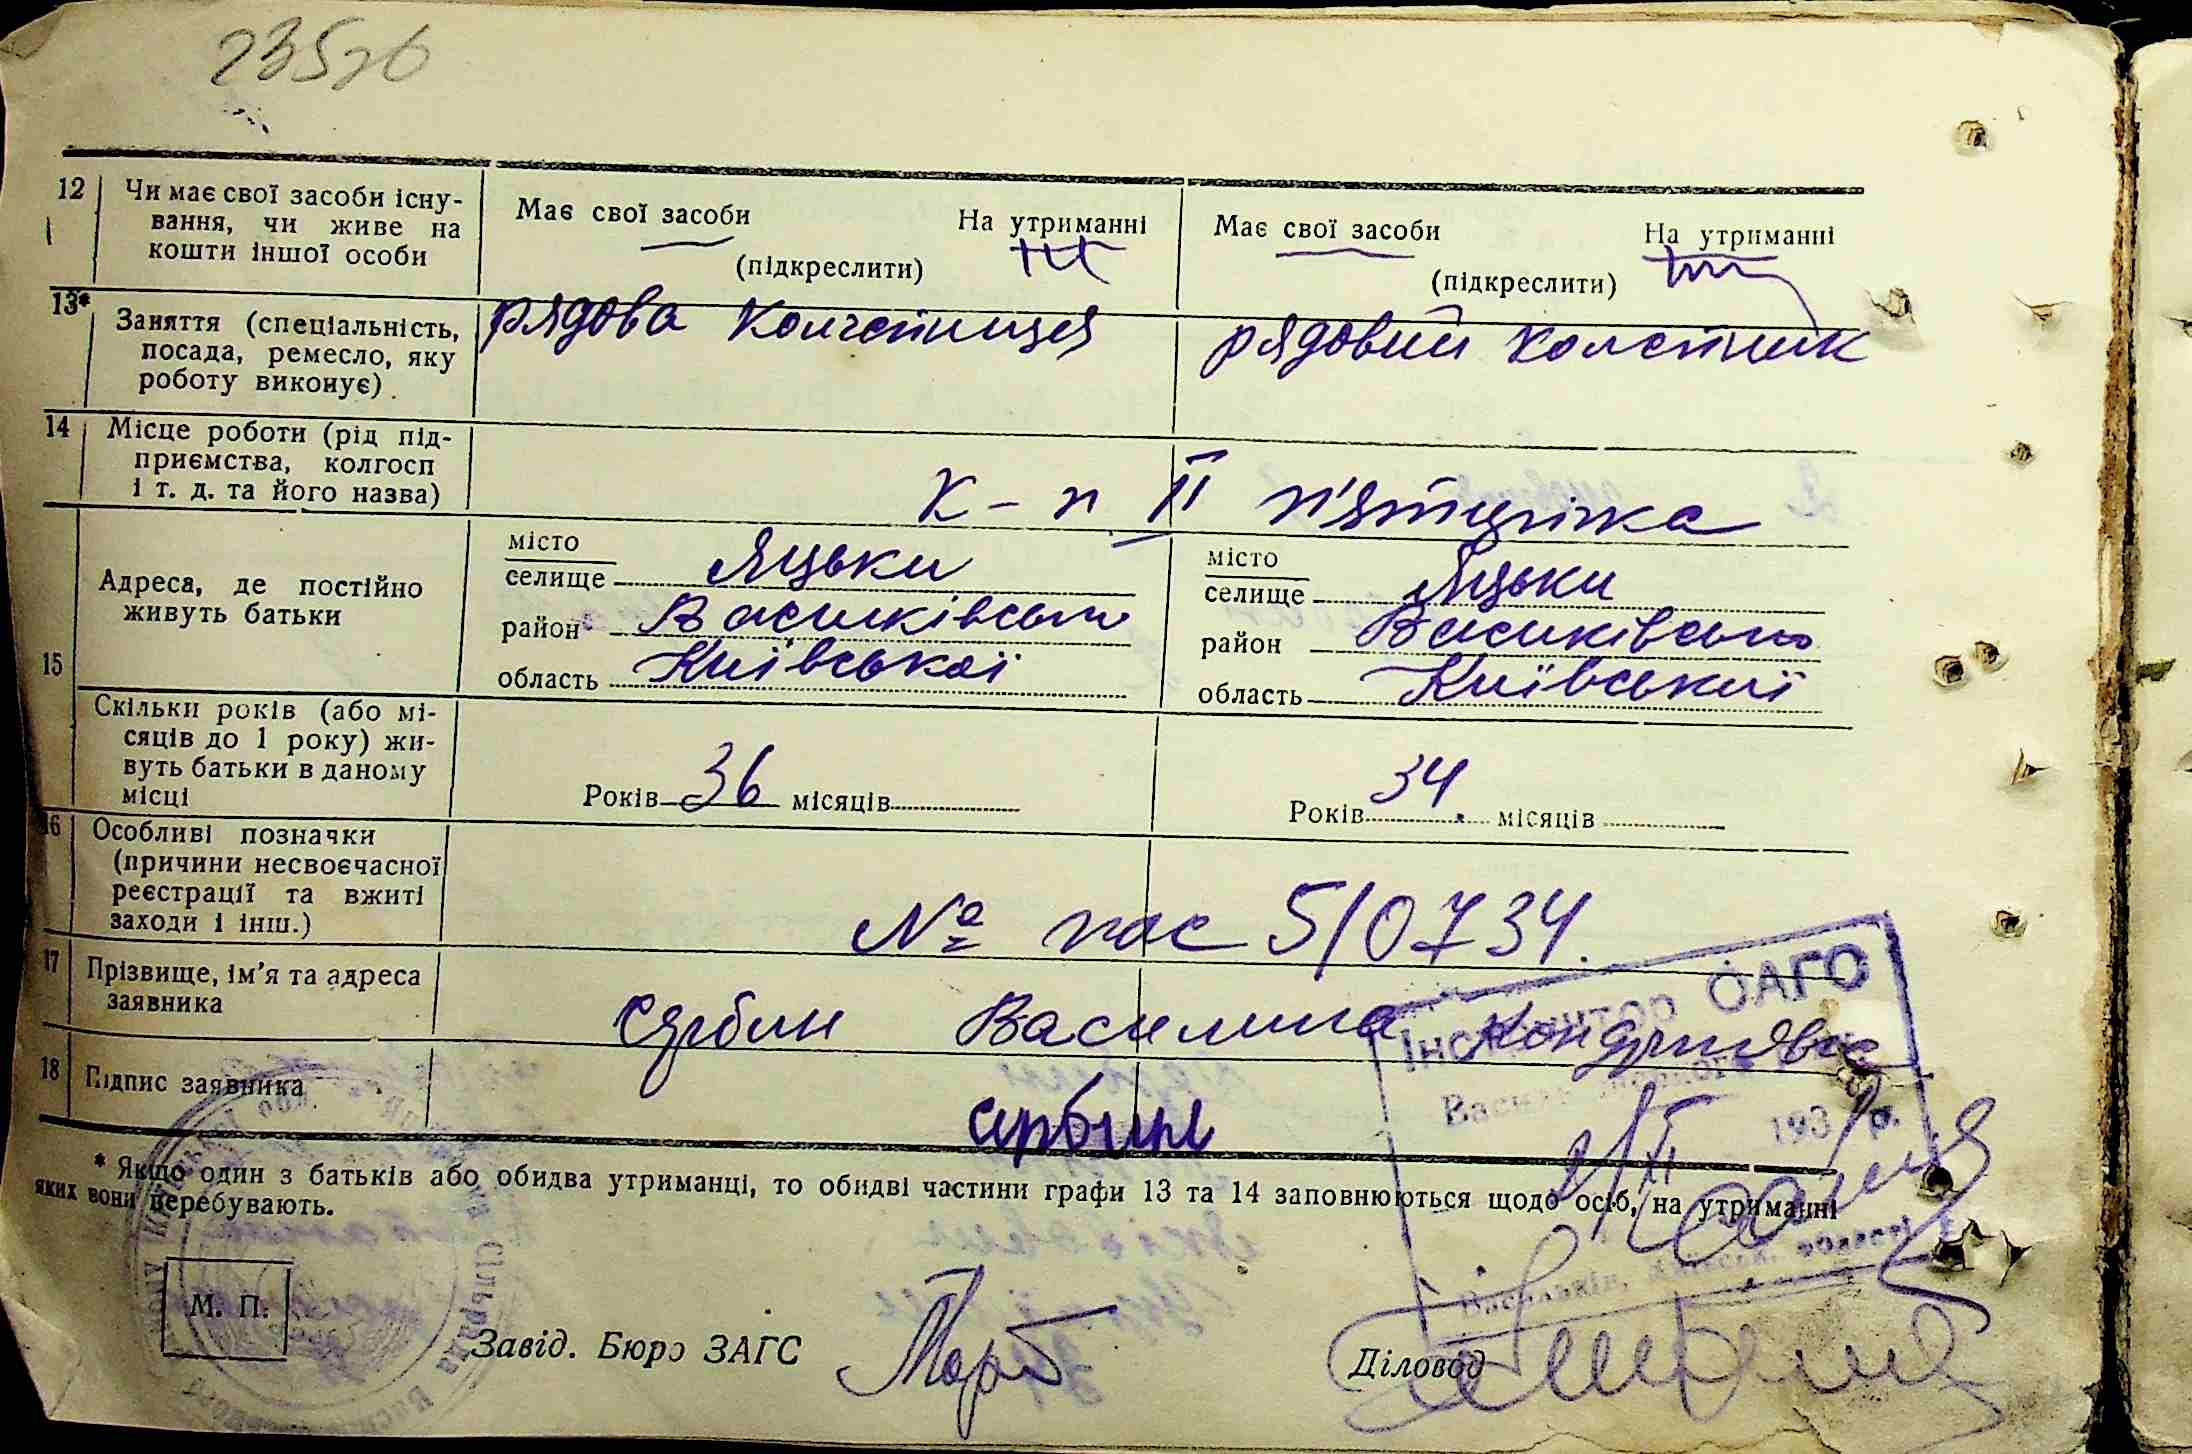 12 Чи має свої засоби існу- Має свої засоби На утриманні Має свої засоби На утриманні
вання, чи живе на
кошти іншої особи (підкреслити) (підкреслити)
13* Заняття (спеціальність, рядова колгспниця рядовий колгспник
посада, ремесло, яку
роботу виконує)
14 Місце роботи (рід під-
приємства, колгосп
і т. д. та його назва) К-п ІІ п'ятирічка
15 Адреса, де постійно
живуть батьки
місто місто
селище Яцьки селище Яцьки
район Васильківсько район Васильківсько
область Київської область Київської
Скільки років (або мі-
сяців до 1 року) жи-
вуть батьки в даному
місці
Років 36 місяців Років 34 місяців
16 Особливі позначки
(причини несвоєчасної
реєстрації та вжиті
заходи і інш.) № пас 510734.
17 Прізвище, ім'я та адреса
заявника Сербин Василина
18 Підпис заявника
Інспектор ОАГС
193 р.
* Якщо один з батьків або обидва утриманці, то обидві частини графи 13 та 14 заповнюються щодо осіб, на утриманні
яких вони перебувають.
М. П.
Завід. Бюро ЗАГС Діловод